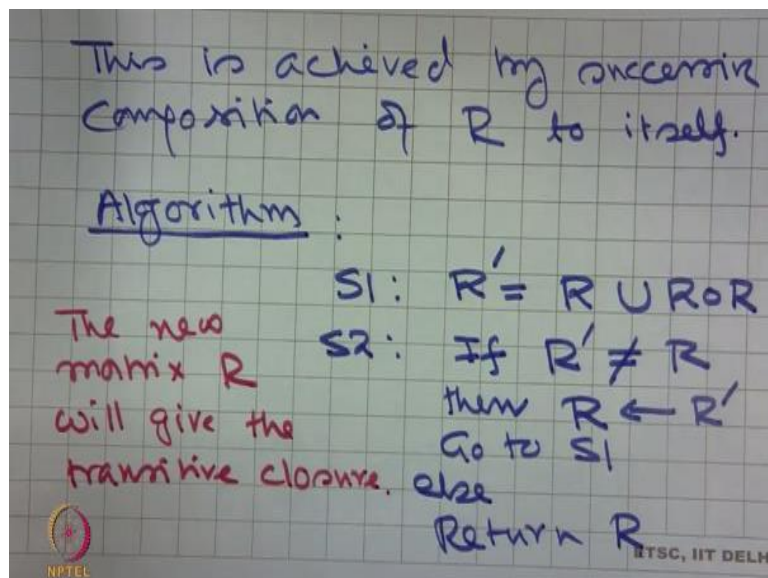 This is achieved by successive
composition of R to itself.
Algorithm :
S1: R′ = R ∪ R∘R
S2: If R′ ≠ R
then R ← R′
Go to S1
else
Return R
The new
matrix R
will give the
transitive closure.
NPTEL
ETSC, IIT DELH